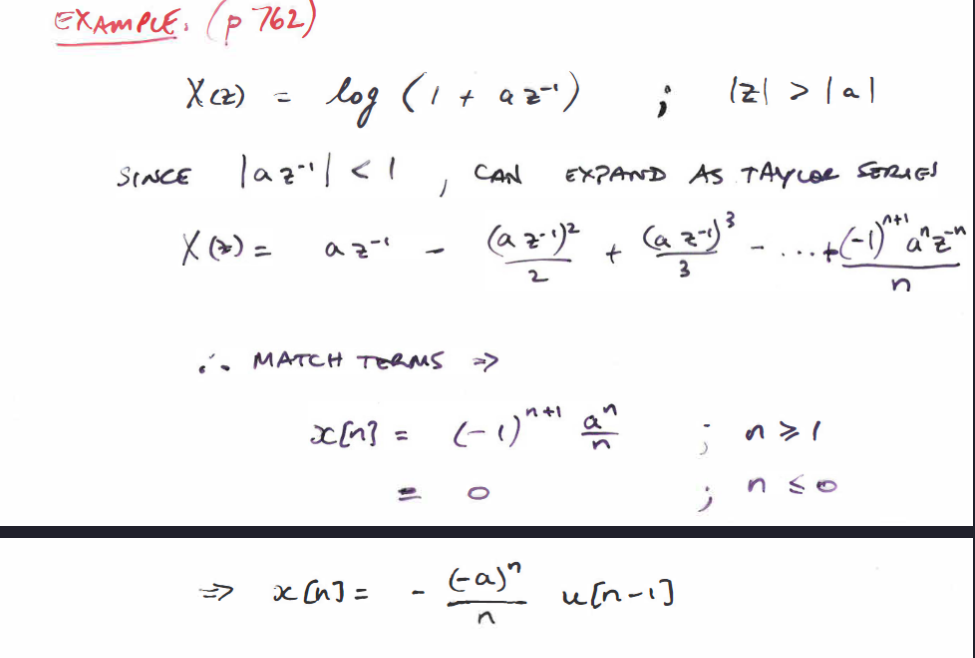 EXAMPLE. (p 762)
X(z) = log (1 + az⁻¹) ; |z| > |a|
SINCE |az⁻¹| < 1 , CAN EXPAND AS TAYLOR SERIES
X(z) = az⁻¹ - (az⁻¹)²/2 + (az⁻¹)³/3 - ... + (-1)ⁿ⁺¹aⁿz⁻ⁿ/n
∴ MATCH TERMS ⇒
x[n] = (-1)ⁿ⁺¹ aⁿ/n ; n ≥ 1
= 0 ; n ≤ 0
⇒ x[n] = - (-a)ⁿ/n u[n-1]